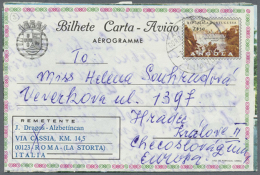 Bilhete Carta-Avião
AÉROGRAMME
To
Miss Helena Souhradová
Veverkova ul. 1397
Hradec
Králové
Checoslovaquia
Europa
REMETENTE
J. Dragoš-Alzbetincan
VIA CASSIA, KM. 14,5
00123 - ROMA - (LA STORTA)
ITALIA